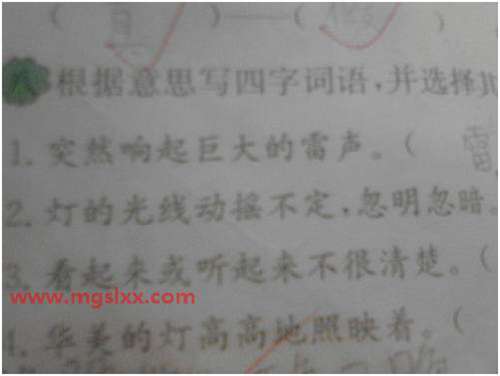 ( )——( )
根据意思写四字词语，并选择其
1. 突然响起巨大的雷声。( 雷
2. 灯的光线动摇不定，忽明忽暗
3. 看起来或听起来不很清楚。(
www.mgslxx.com
4. 华美的灯高高地照映着。(